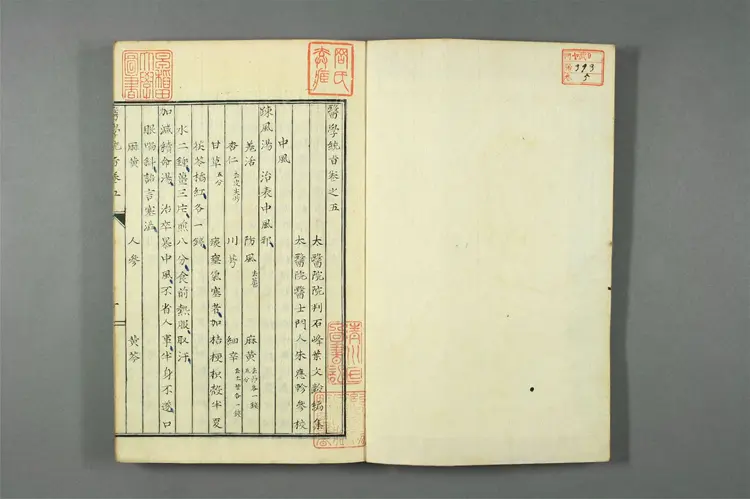 醫學統旨卷之五
太醫院院判石峰葉文齡編集
太醫院醫士門人朱應軫參校
中風
疎風湯 治表中風邪
羗活 防風去蘆 麻黄去節各一錢五分
杏仁去皮尖炒 川芎 細辛去土葉各一錢
甘草五分 痰壅氣塞者加桔梗枳殻半夏
茯苓橘紅各一錢
水二鍾薑三片煎八分食前熱服取汗
加減續命湯 治卒暴中風不省人事半身不遂口
眼喎斜語言蹇澁
麻黄 人參 黄芩
醫學統旨卷五
早稻田大學圖書
393
5